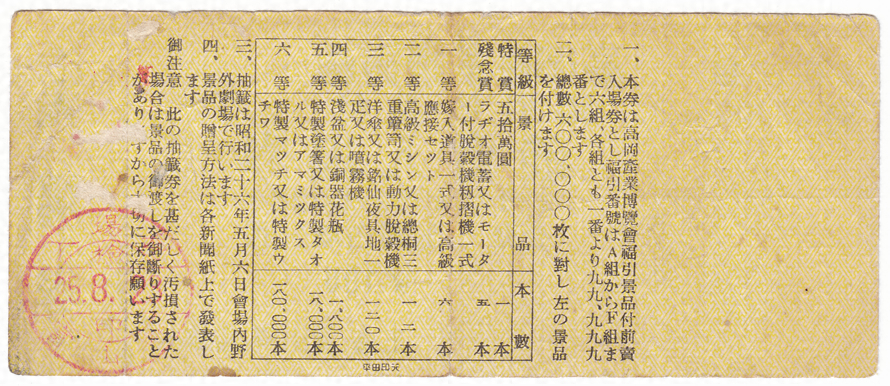 一、本券は高岡産業博覽會福引景品付前賣
入場券とし福引番號はA組からF組ま
で六組、各組とも一番より九九、九九九
番とします
二、總數六〇〇、〇〇〇枚に對し左の景品
を付けます
等級 景品 本數
特賞 五拾萬圓 一本
殘念賞 ラヂオ電蓄又はモータ
ー付脱穀機籾摺機一式 五本
一等 嫁入道具一式又は高級
應接セツト 六本
二等 高級ミシン又は總桐三
重簞笥又は動力脱穀機 一二本
三等 洋傘又は銘仙夜具地一
疋又は噴霧機 一二〇本
四等 淺盆又は銅器花瓶 一、八〇〇本
五等 特製塗箸又は特製タオ
ル又はアマミツクス 一八、〇〇〇本
六等 特製マッチ又は特製ウ
チワ 一八〇、〇〇〇本
三、抽籤は昭和二十六年五月六日會場内野
外劇場で行います
四、景品の贈呈方法は各新聞紙上で發表し
ます
御注意 此の抽籤券を甚だしく汚損された
場合は景品の御渡しを御斷りすること
があり ずから 切に保存願います
場
25.8.23
山